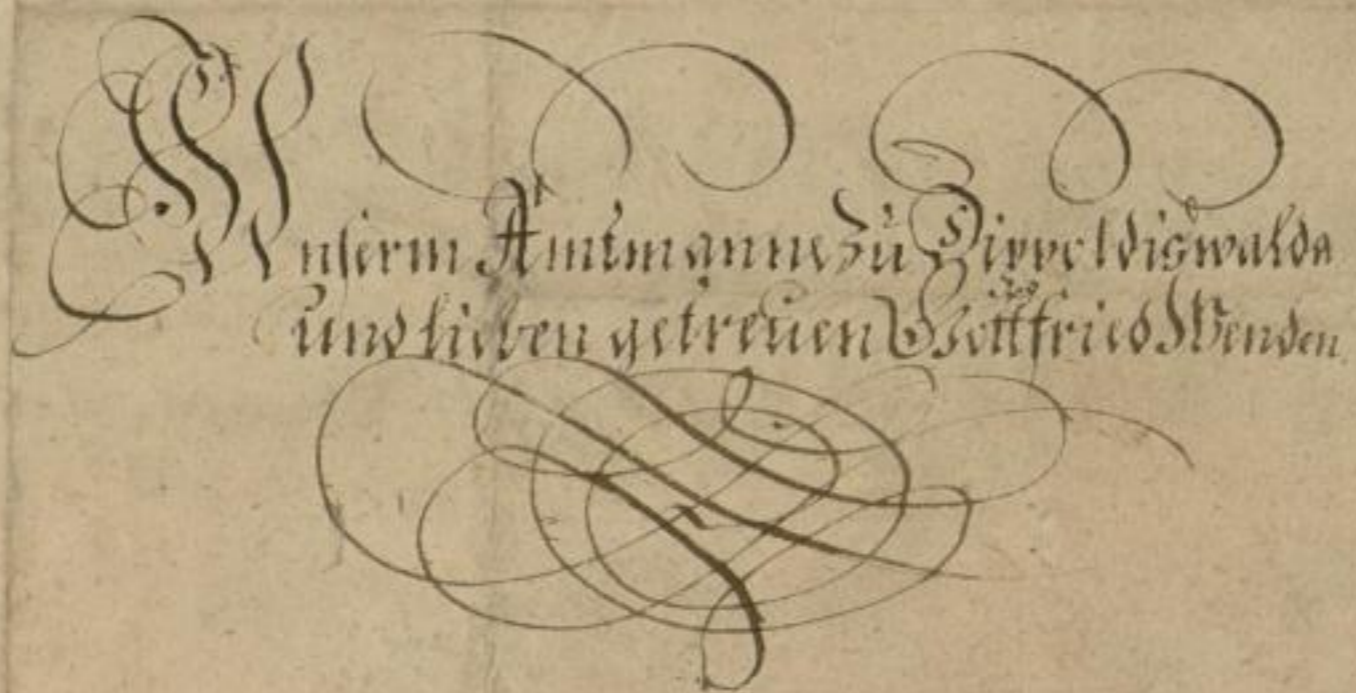 Unserm Amtmanne zu Dippoldiswalda
und lieben getreuen Gottfried Wenden.